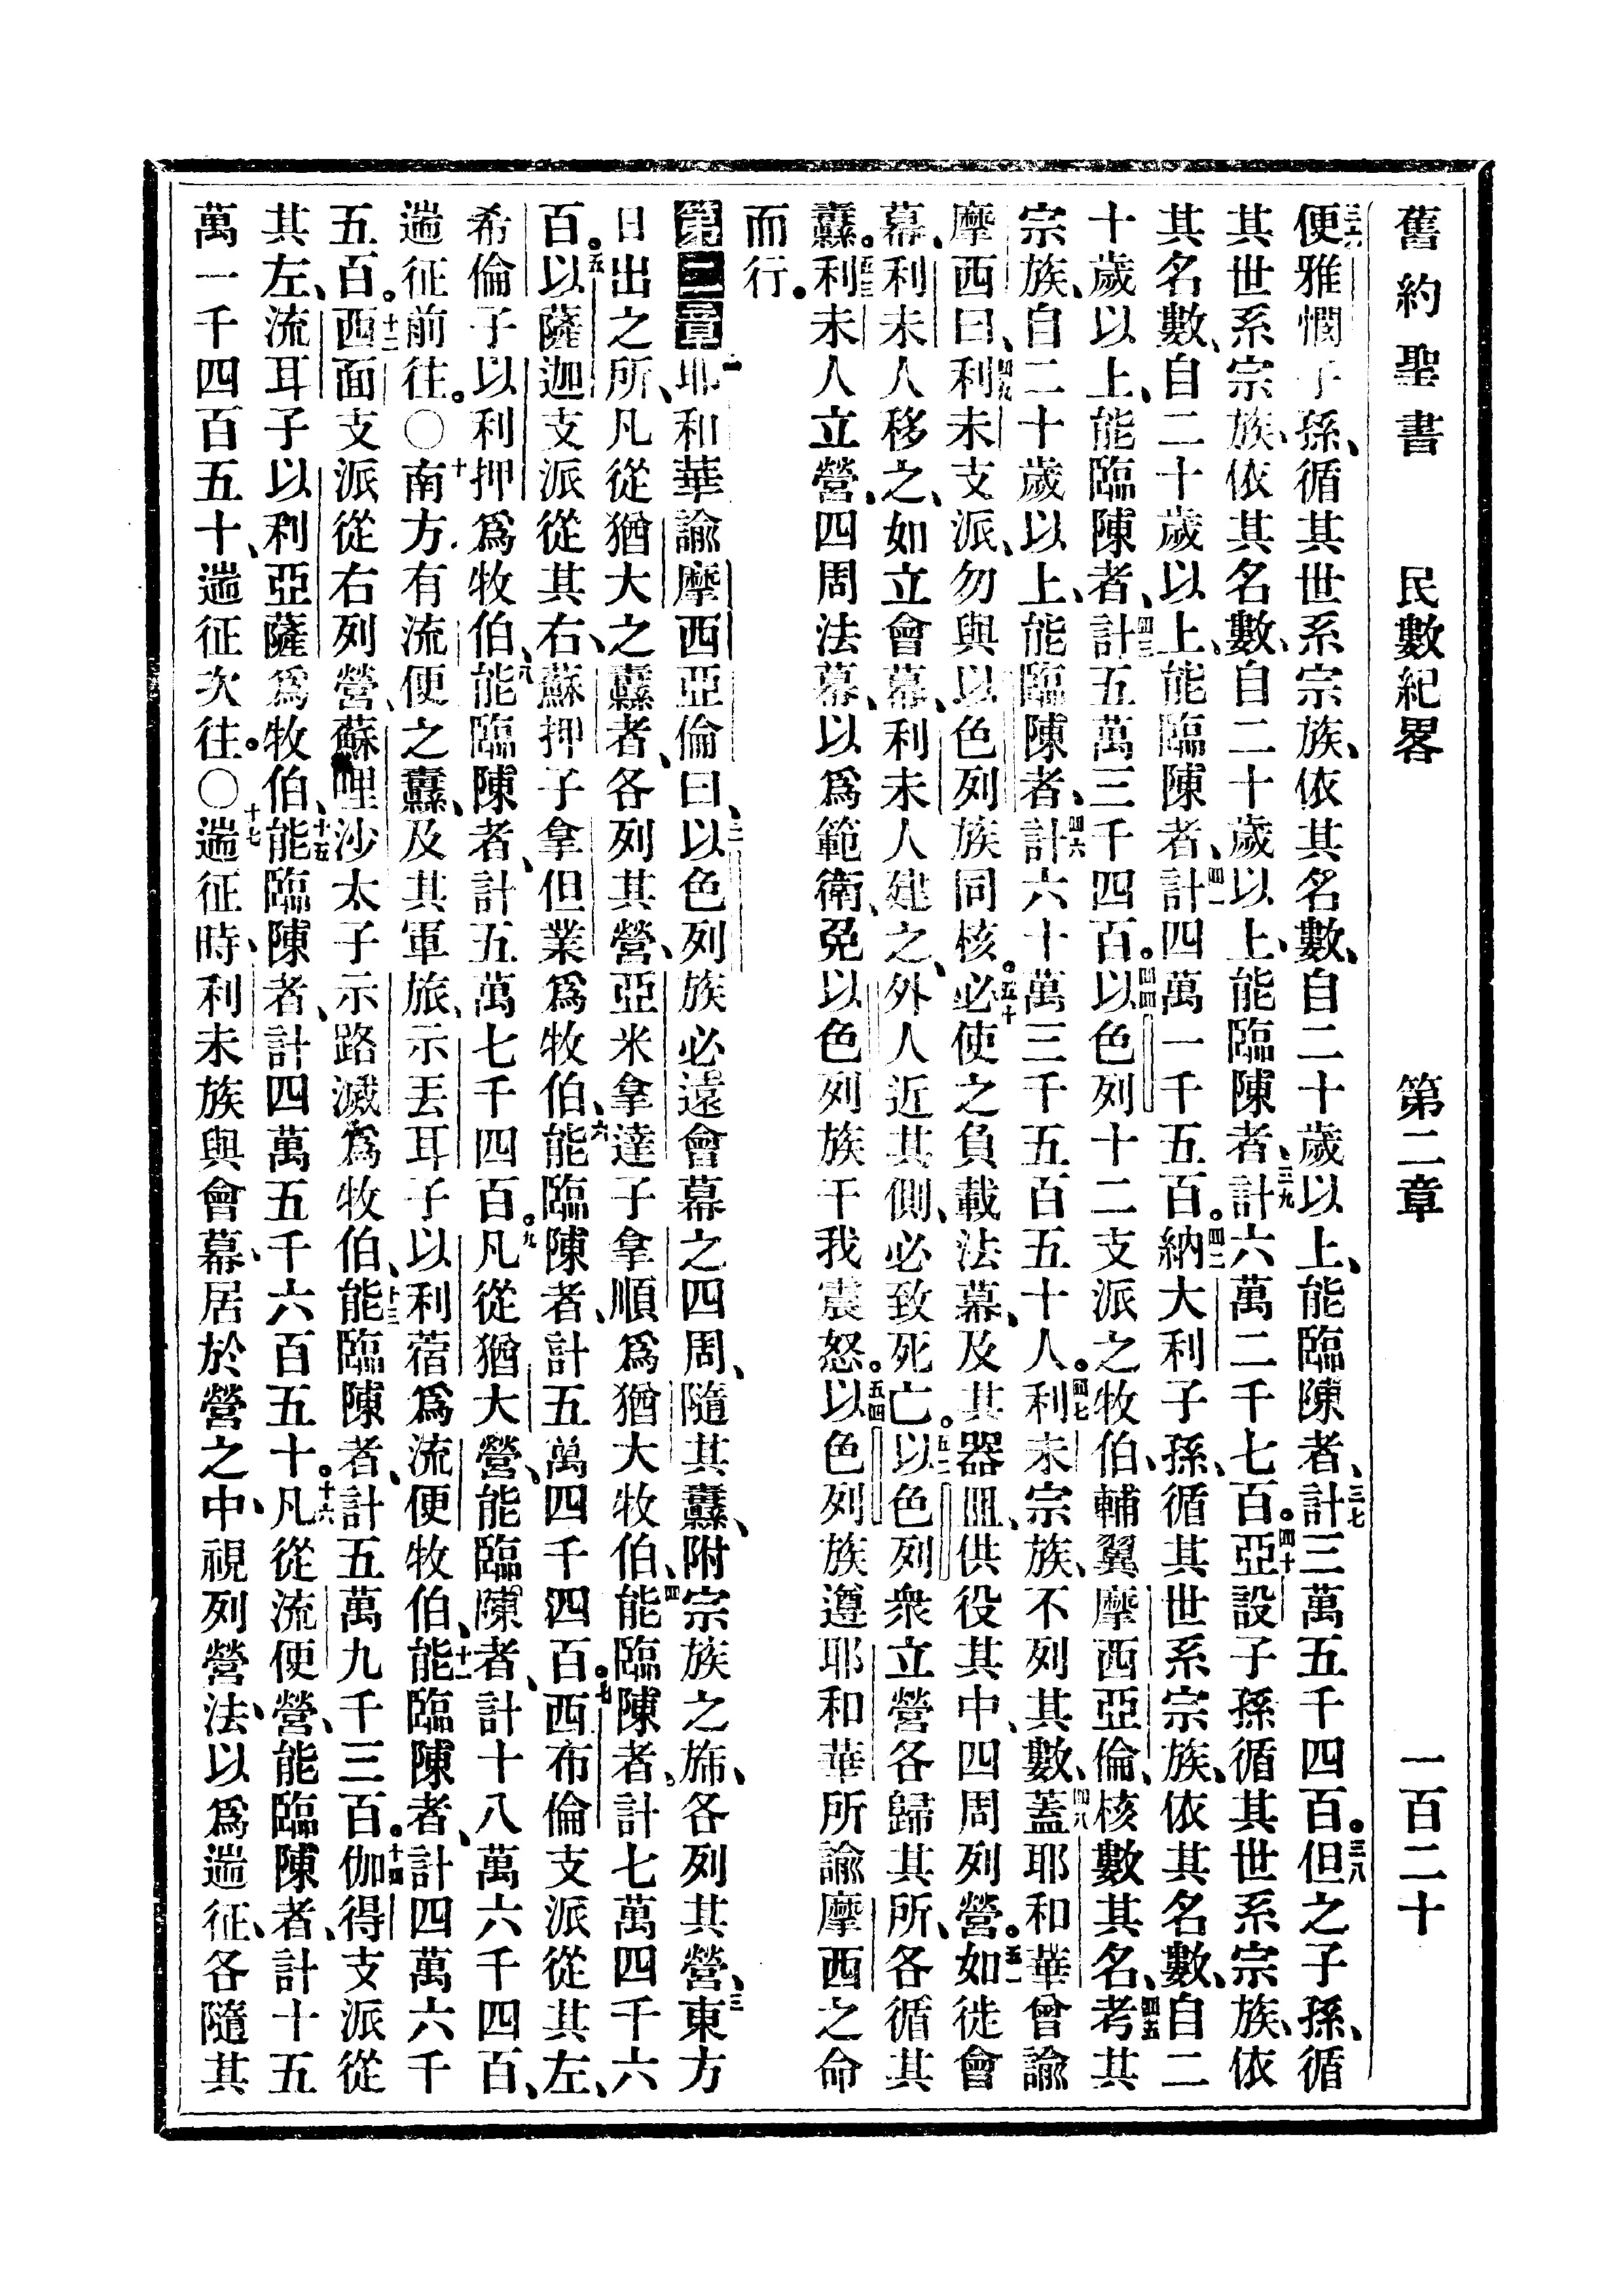 舊約聖書 民數紀畧 第二章 一百二十
便雅憫子孫、循其世系宗族、依其名數、自二十歲以上、能臨陳者、三七計三萬五千四百。三八但之子孫、循
其世系宗族、依其名數、自二十歲以上、能臨陳者、三九計六萬二千七百。四十亞設子孫循其世系宗族、依
其名數、自二十歲以上、能臨陳者、四一計四萬一千五百。四二納大利子孫、循其世系宗族、依其名數、自二
十歲以上、能臨陳者、四三計五萬三千四百。四四以色列十二支派之牧伯、輔翼摩西亞倫、核數其名、四五考其
宗族、自二十歲以上、能臨陳者、四六計六十萬三千五百五十人。四七利未宗族、不列其數、四八蓋耶和華曾諭
摩西曰、四九利未支派、勿與以色列族同核。五十必使之負載法幕、及其器皿、供役其中、四周列營。五一如徙會
幕、利未人移之、如立會幕、利未人建之、外人近其側、必致死亡。五二以色列衆立營各歸其所、各循其
纛。五三利未人立營、四周法幕、以爲範衛、免以色列族干我震怒。五四以色列族遵耶和華所諭摩西之命
而行。
第二章一耶和華諭摩西亞倫曰、二以色列族必遠會幕之四周、隨其纛、附宗族之旆、各列其營、三東方
日出之所、凡從猶大之纛者、各列其營、亞米拿達子拿順爲猶大牧伯、四能臨陳者、計七萬四千六
百。五以薩迦支派從其右、蘇押子拿但業爲牧伯、六能臨陳者、計五萬四千四百。七西布倫支派從其左、
希倫子以利押爲牧伯、八能臨陳者、計五萬七千四百。九凡從猶大營、能臨陳者、計十八萬六千四百、
遄征前往。〇十南方、有流便之纛、及其軍旅、示丟耳子以利蓿爲流便牧伯、十一能臨陳者、計四萬六千
五百。十二西面支派從右列營、蘇哩沙太子示路滅爲牧伯、十三能臨陳者、計五萬九千三百。十四伽得支派從
其左、流耳子以利亞薩爲牧伯、十五能臨陳者、計四萬五千六百五十。十六凡從流便營、能臨陳者、計十五
萬一千四百五十、遄征次往。〇十七遄征時、利未族與會幕、居於營之中、視列營法、以爲遄征、各隨其